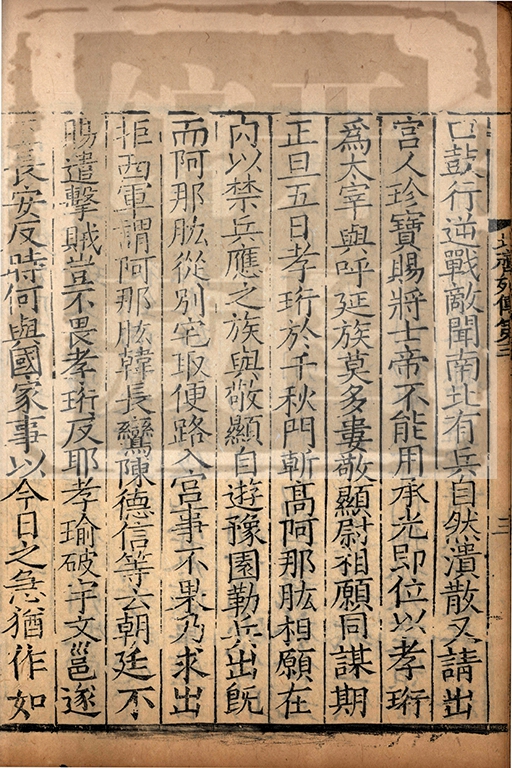 北齊列傳第三
三
口鼓行逆戰敵聞南北有兵自然潰散又請出
宮人珍寶賜將士帝不能用承光即位以孝珩
爲太宰與呼延族莫多婁敬顯尉相願同謀期
正旦五日孝珩於千秋門斬高阿那肱相願在
內以禁兵應之族與敬顯自遊豫園勒兵出旣
而阿那肱從別宅取便路入宮事不果乃求出
拒西軍謂阿那肱韓長鸞陳德信等云朝廷不
賜遣擊賊豈不畏孝珩反耶孝瑜破宇文邕遂
至長安反時何與國家事以今日之急猶作如